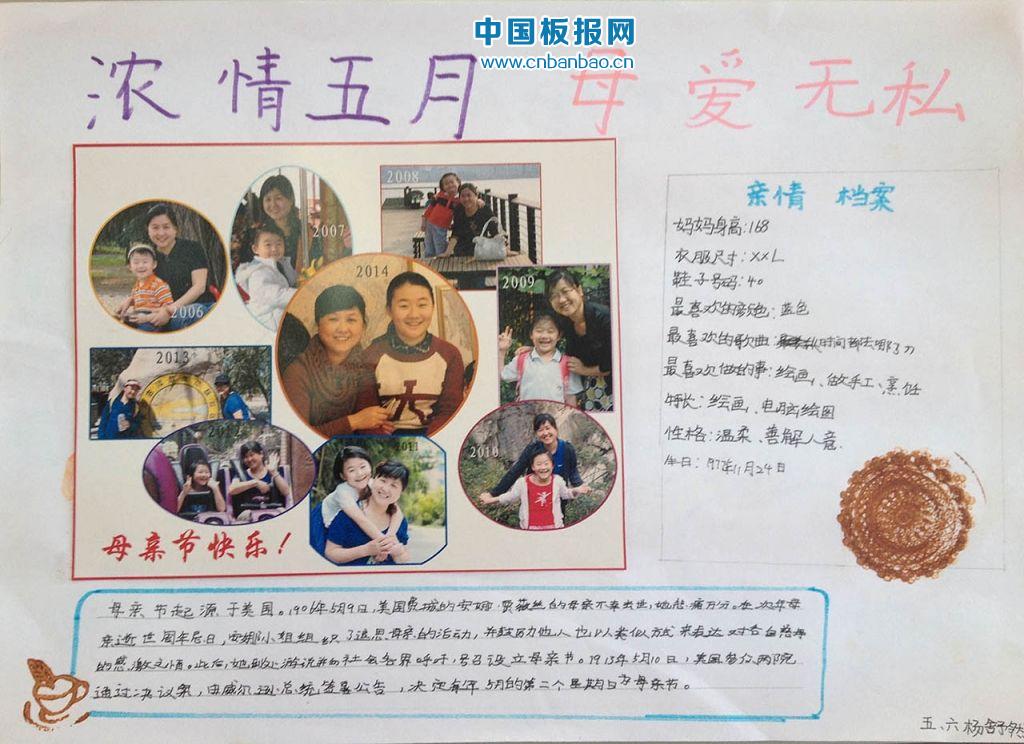 中国板报网
www.cnbanbao.cn
浓情五月 母爱无私
2006
2007
2008
2014
2009
2013
2012
2011
2010
母亲节快乐！
亲情 档案
妈妈身高：168
衣服尺寸：XXL
鞋子号码：40
最喜欢的颜色：蓝色
最喜欢的歌曲：时间都去哪了
最喜欢做的事：绘画、做手工、烹饪
特长：绘画、电脑绘图
性格：温柔、善解人意.
生日：11月24日
母亲节起源于美国。1906年5月9日，美国费城的安娜·贾薇丝的母亲不幸去世，她悲痛万分。在次年母
亲逝世周年忌日，安娜小姐组织了追思母亲的活动，并鼓励他人也以类似方式来表达对各自慈母
的感激之情。此后，她到处游说并向社会各界呼吁，号召设立母亲节。1913年5月10日，美国参众两院
通过决议案，由威尔逊总统签署公告，决定每年5月的第二个星期日为母亲节。
五、六 杨舒然